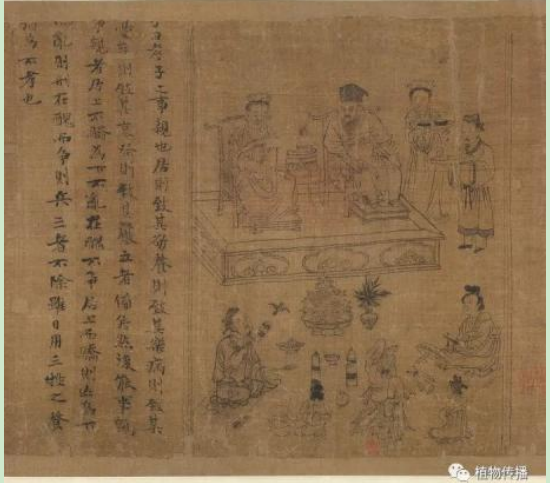 子曰孝子之事親也居則致其敬養則致其樂病則致其
憂喪則致其哀祭則致其嚴五者備矣然後能事親
事親者居上不驕為下不亂在醜不爭居上而驕則亡為下
而亂則刑在醜而爭則兵三者不除雖日用三牲之養
猶為不孝也
植物传播